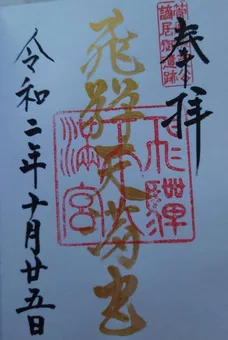 奉拝
飛騨天満宮
飛騨天満宮
令和二年十月廿五日